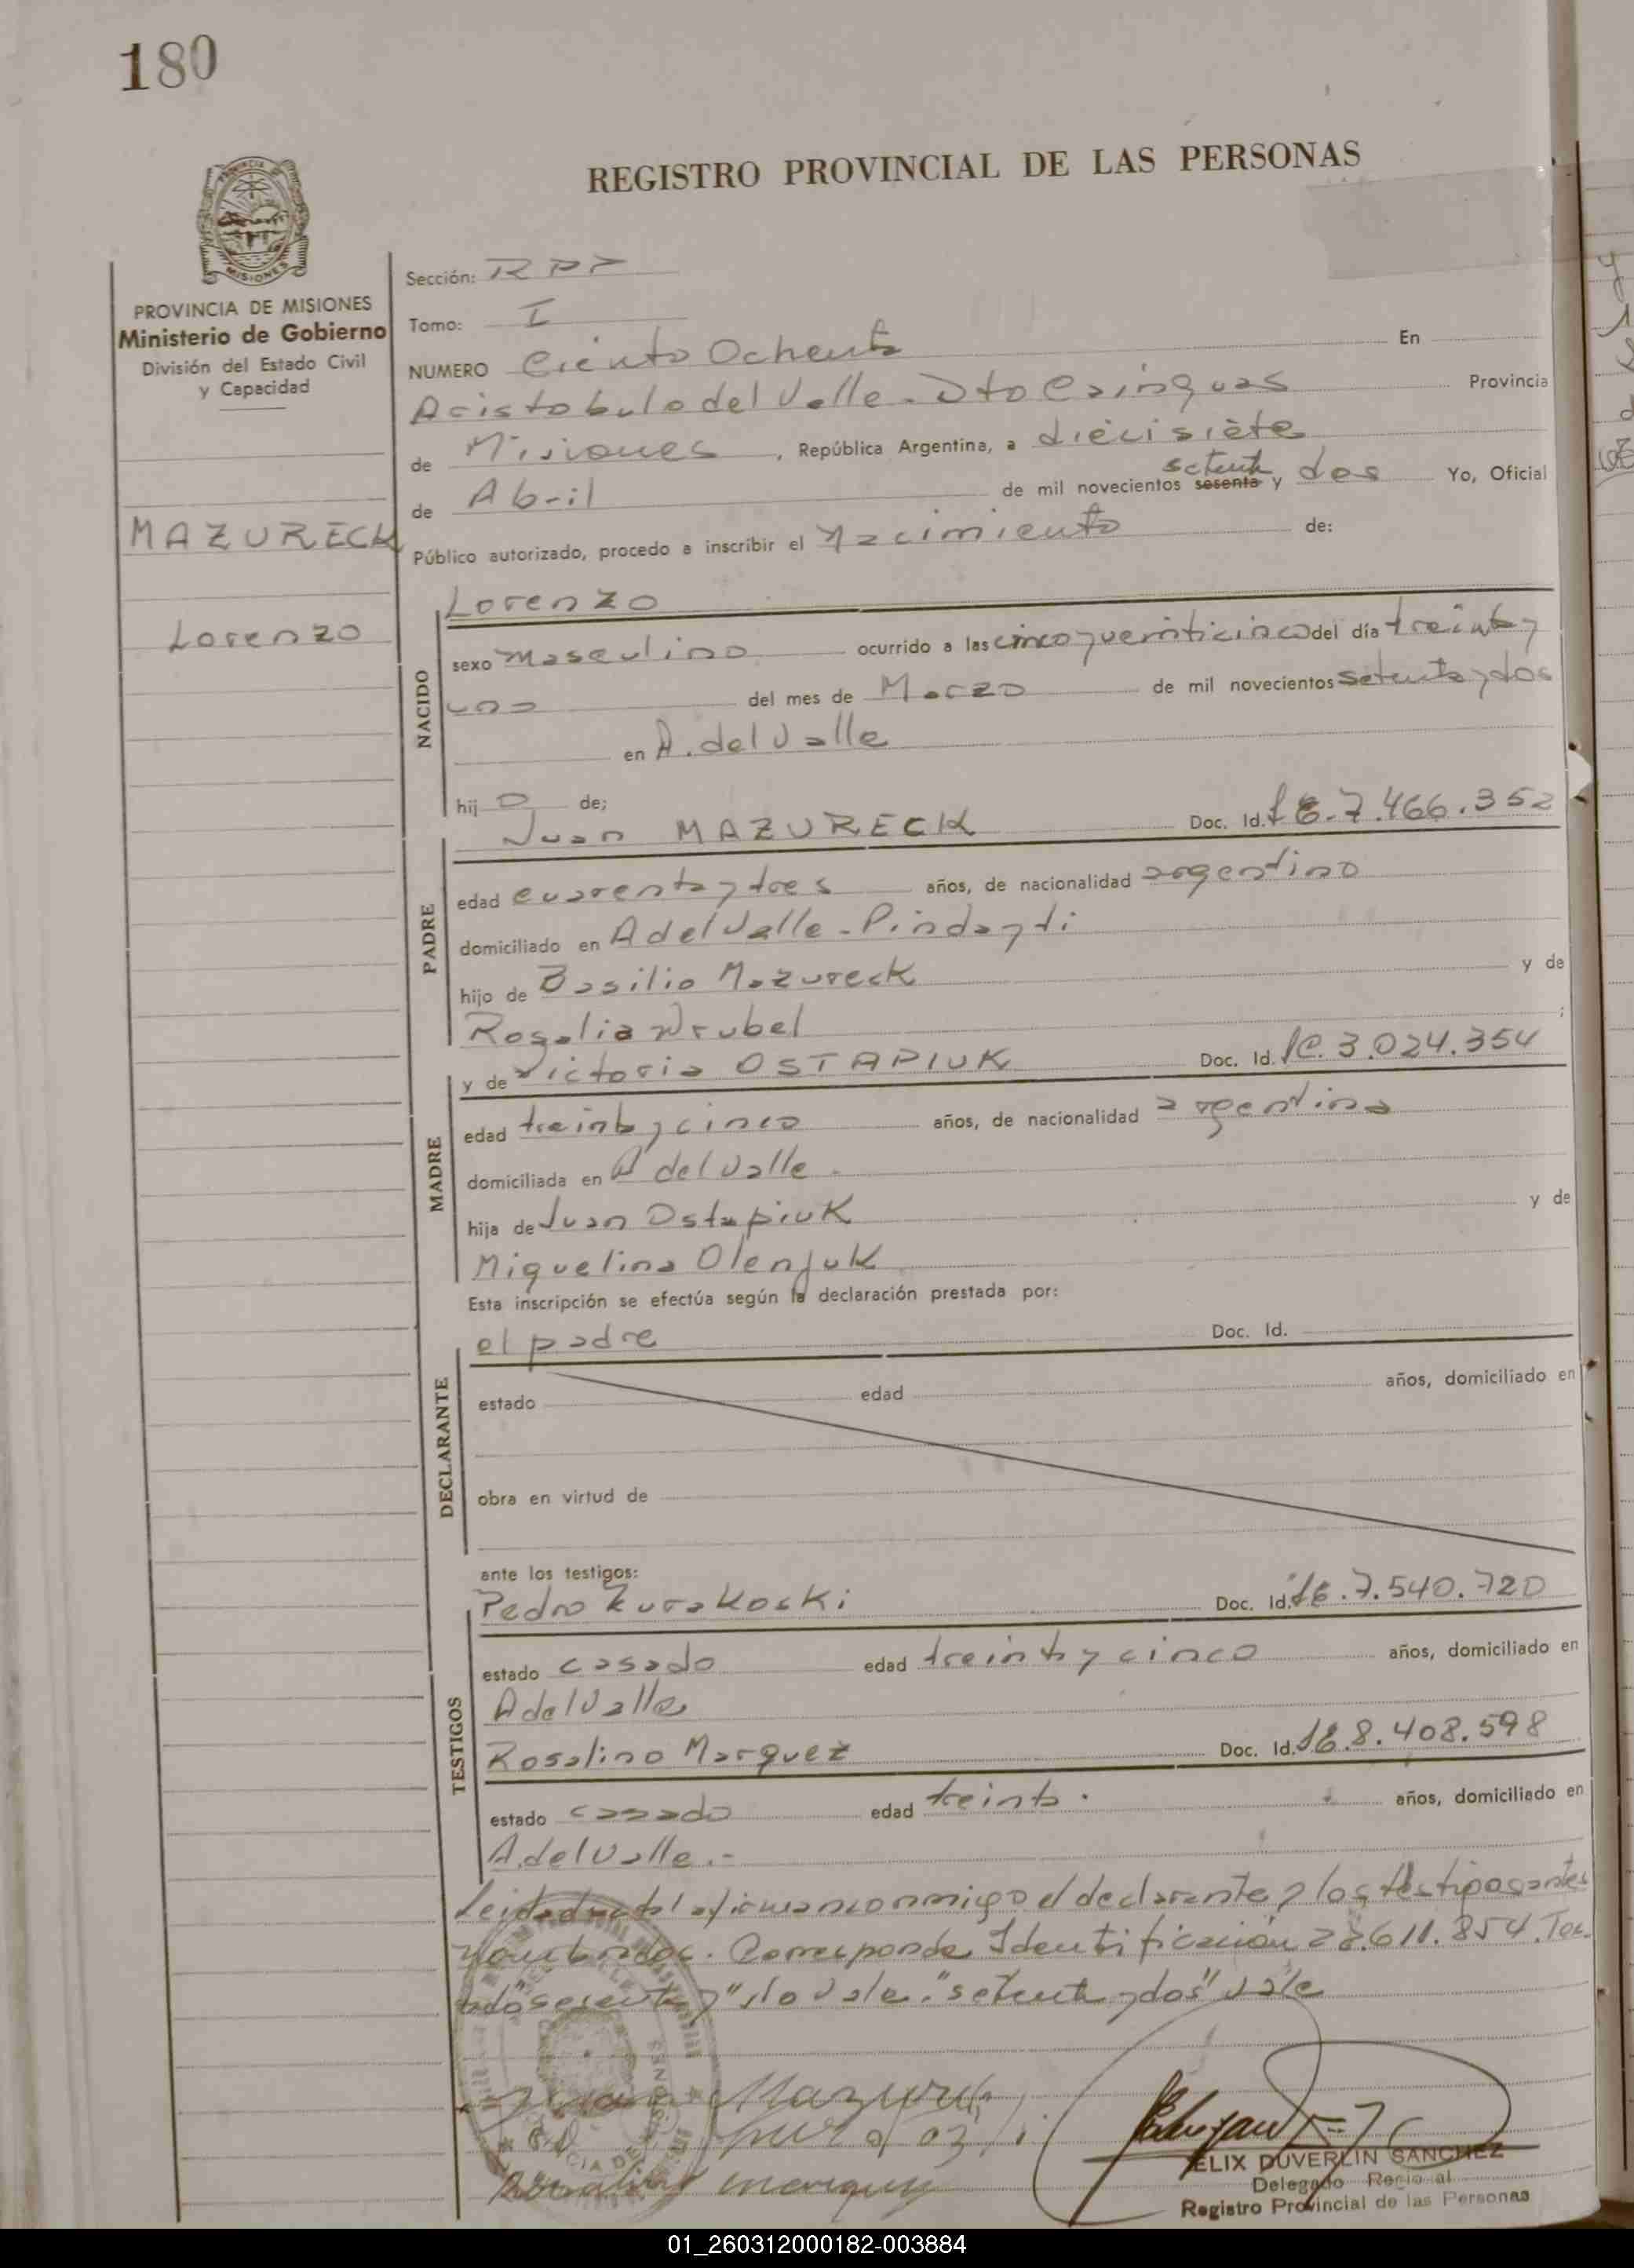 180
REGISTRO PROVINCIAL DE LAS PERSONAS
PROVINCIA DE MISIONES
Ministerio de Gobierno
División del Estado Civil
y Capacidad
MAZURECK
Lorenzo
Sección: RPP
Tomo: I
NUMERO Ciento Ochenta En
Aristobulo del Valle - Dto Cainguas Provincia
de Misiones, República Argentina, a diecisiete
setenta
de Abril de mil novecientos sesenta y dos Yo, Oficial
Público autorizado, procedo a inscribir el Nacimiento de:
NACIDO
Lorenzo
sexo masculino ocurrido a las cinco y veinticinco del día treinta y
uno del mes de Marzo de mil novecientos setenta y dos
en A. del Valle
hijo de;
PADRE
Juan MAZURECK Doc. Id. 7.466.352
edad cuarenta y tres años, de nacionalidad argentino
domiciliado en A del Valle - Pindayti
hijo de Basilio Mazureck y de
Rosalia Wrubel ;
MADRE
y de Victoria OSTAPIUK Doc. Id. LC. 3.024.354
edad treinta y cinco años, de nacionalidad argentina
domiciliada en A del Valle -
hija de Juan Ostapiuk y de
Miguelina Olenjuk
Esta inscripción se efectúa según la declaración prestada por:
DECLARANTE
el padre Doc. Id.
estado edad años, domiciliado en
obra en virtud de
ante los testigos:
TESTIGOS
Pedro Kurakoski Doc. Id. LE. 7.540.720
estado casado edad treinta y cinco años, domiciliado en
A del Valle
Rosalino Marquez Doc. Id. LE 8.408.598
estado casado edad treinta - años, domiciliado en
A. del Valle .-
Leida el acta la firman conmigo el declarante y los testigos antes
nombrados. Corresponde Identificación 22.611.854. Tes-
tado "sesenta y" No vale. "setenta y dos" vale
Juan Mazureck
Rosalino Marquez
FELIX DUVERLIN SANCHEZ
Delegado Regional
Registro Provincial de las Personas
01_260312000182-003884